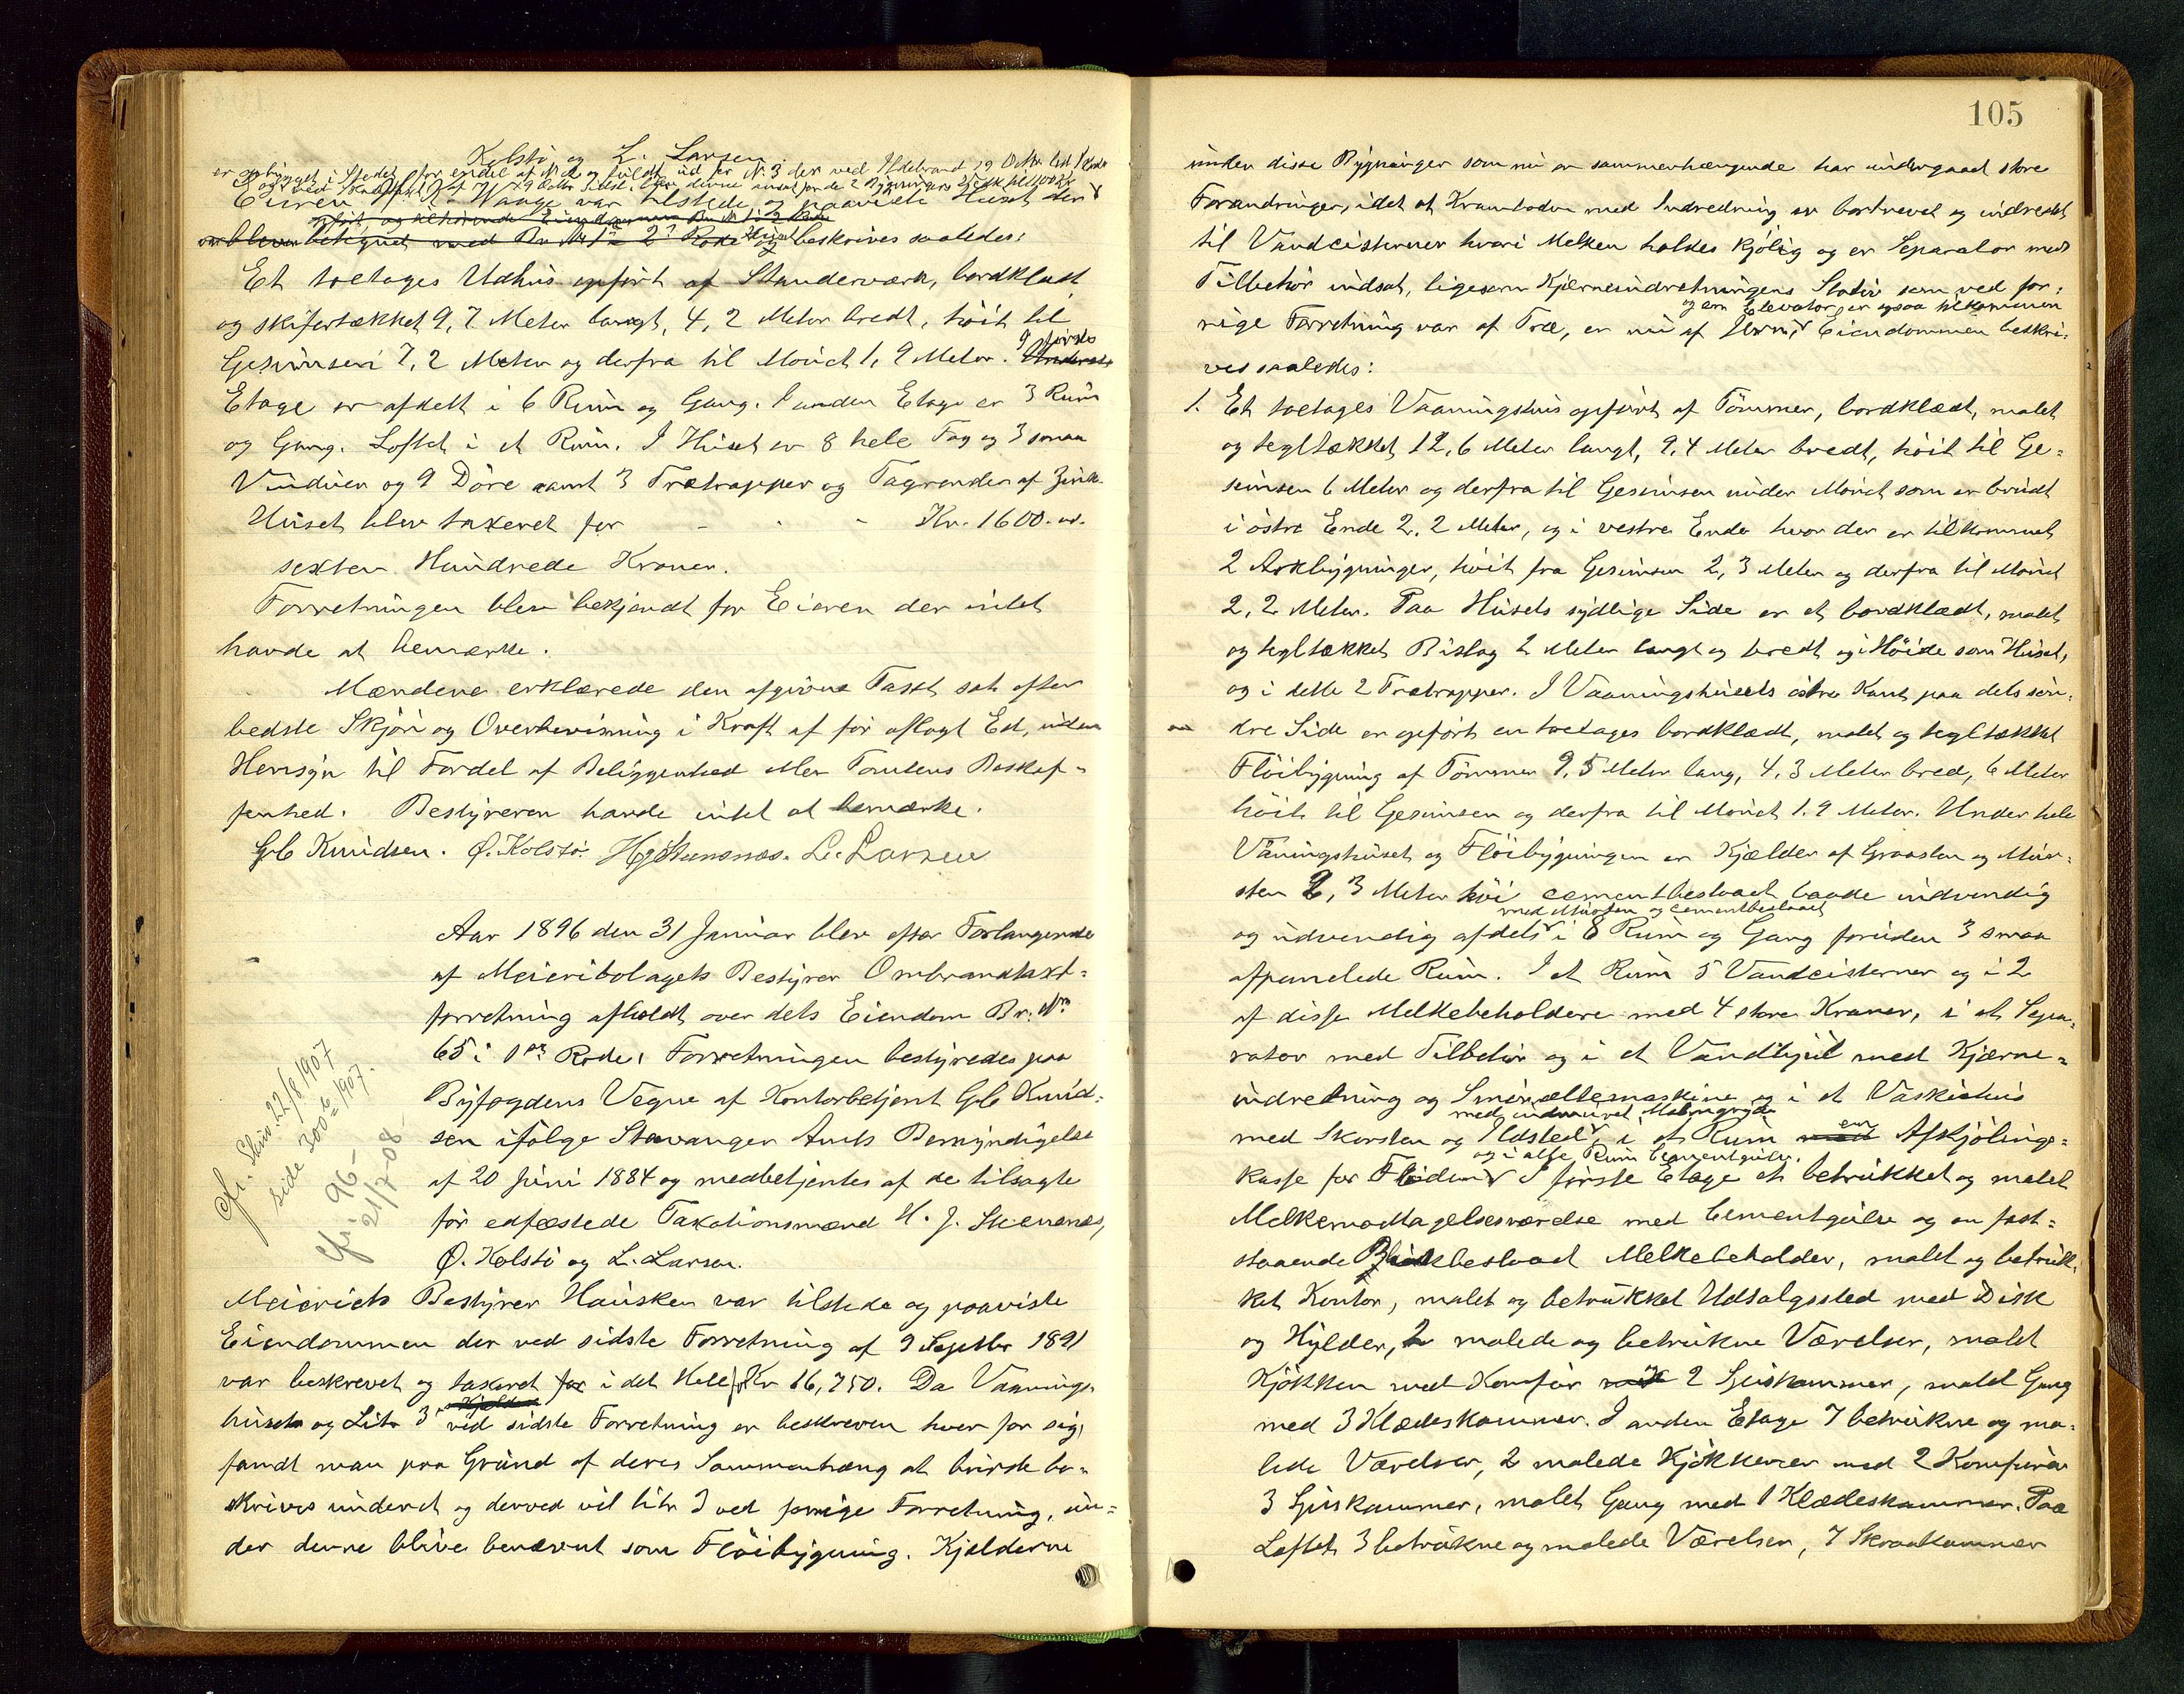 Kolstø og L. Larsen.
er opbygget i Stedet for endel af N. 2 og fuldt ud for N. 3 der ved Ildebrand 19 Octbr
Eieren Waage var tilstede og paaviste Huset der
beskrives saaledes:
Et toetages Udhus opført af Standerværk, bordklædt
og skifertækket 9,7 Meter langt, 4,2 Meter bredt, høit til
Gesimsen 7,2 Meter og derfra til Mønet 1,9 Meter. I første
Etage er afdelt i 6 Rum og Gang. I anden Etage er 3 Rum
og Gang. Loftet i et Rum. I Huset er 8 hele Fag og 3 smaa
Vinduer og 9 Døre samt 3 Trætrapper og Tagrender af Zink.
Huset blev taxeret for - - - Kr. 1600.
sexten Hundrede Kroner.
Forretningen blev bekjendt for Eieren der intet
havde at bemærke.
Mændene erklærede den afgivne Taxt sat efter
bedste Skjøn og Overbevisning i Kraft af før aflagt Ed, uden
Hensyn til Fordel af Beliggenhed eller Tomtens Beskaf-
fenhed. Bestyreren havde intet at bemærke.
Glb Knudsen. Ø. Kolstø. H J Stensnæs. L. Larsen
Aar 1896 den 31 Januar blev efter Forlangende
af Meieribolagets Bestyrer Ombrandtaxt-
forretning afholdt over dets Eiendom Br. No
65 i 1ste Rode. Forretningen bestyredes paa
Byfogdens Vegne af Kontorbetjent Glb Knud-
sen ifølge Stavanger Amts Bemyndigelse
af 20 Juni 1884 og medbetjentes af de tilsagte
før edfæstede Taxationsmænd H. J. Stensnæs,
Ø. Kolstø og L. Larsen.
cfr. Skuv 22/8 1907
side 300 b 1907.
cfr 96-
21/7-08
Meieriets Bestyrer Hausken var tilstede og paaviste
Eiendommen der ved sidste Forretning af 9 Septbr 1891
var beskrevet og taxeret for i det Hele for Kr 16,750. Da Vaanings-
huset og Litr 3 ved sidste Forretning er beskreven hver for sig,
fandt man paa Grund af deres Sammenhæng at burde be-
skrives underet og derved vil litr 3 ved forrige Forretning, un-
der denne blive benævnt som Fløibygning. Kjelderne
105
under disse Bygninger som nu er sammenhængende har undergaaet store
Forandringer, idet at Kramboden med Indredning er bortrevet og indredet
til Vandcisterner hvori Melken holdes kjølig og er Separator med
Tilbehør indsat, ligesom Kjærneindretningens Stativ som ved for-
og en Elevator er ogsaa tilkommen
rige Forretning var af Træ, er nu af Jern. Eiendommen beskri-
ves saaledes:
1. Et toetages Vaaningshus opført af Tømmer, bordklædt, malet
og tegltækket 12,6 Meter langt, 9,4 Meter bredt, høit til Ge-
simsen 6 Meter og derfra til Gesimsen under Mønet som er brudt
i østre Ende 2,2 Meter, og i vestre Ende hvor der er tilkommet
2 Arkbygninger, høit fra Gesimsen 2,3 Meter og derfra til Mønet
2,2 Meter. Paa Husets sydlige Side er et bordklædt, malet
og tegltækket Bislag 2 Meter langt og bredt og i Høide som Huset,
og i dette 2 Trætrapper. I Vaaningshusets østre Kant paa dets søn-
dre Side er opført en toetages bordklædt, malet og tegltækket
Fløibygning af Tømmer 9,5 Meter lang, 4,3 Meter bred, 6 Meter
høit til Gesimsen og derfra til Mønet 1.9 Meter. Under hele
Vaningshuset og Fløibygningen er Kjælder af Graasten og Mur-
sten 2,3 Meter høi cementbeslaaet baade indvendig
med Mursten og cementbeslaaet
og udvendig afdelt i 8 Rum og Gang foruden 3 smaa
afpanelede Rum. I et Rum 5 Vandcisterner og i 2
af disse Melkebeholdere med 4 store Kraner, i et Sepa-
rator med Tilbehør og i et Vandhjul med Kjærne-
indretning og Smøræltemaskine og i et Vaskehus
med indmuret Malmgryde
med Skorsten og Ildsted, i et Rum en Afkjølings-
og i alle Rum Cementgulv.
kasse for Fløden. I første Etage et betrukket og malet
Melkemodtagelsesværelse med Cementgulv og en fast-
staaende Blikbeslaaet Melkebeholder, malet og betruk-
ket Kontor, malet og betrukket Udsalgssted med Disk
og Hylder, 2 malede og betrukne Værelser, malet
Kjøkken med Komfur 2 Spiskammer, malet Gang
med 3 Klædeskammer. I anden Etage 7 betrukne og ma-
lede Værelser, 2 malede Kjøkkener med 2 Komfurer
3 Spiskammer, malet Gang med 1 Klædeskammer. Paa
Loftet 3 betrukne og malede Værelser, 7 Skraakammer